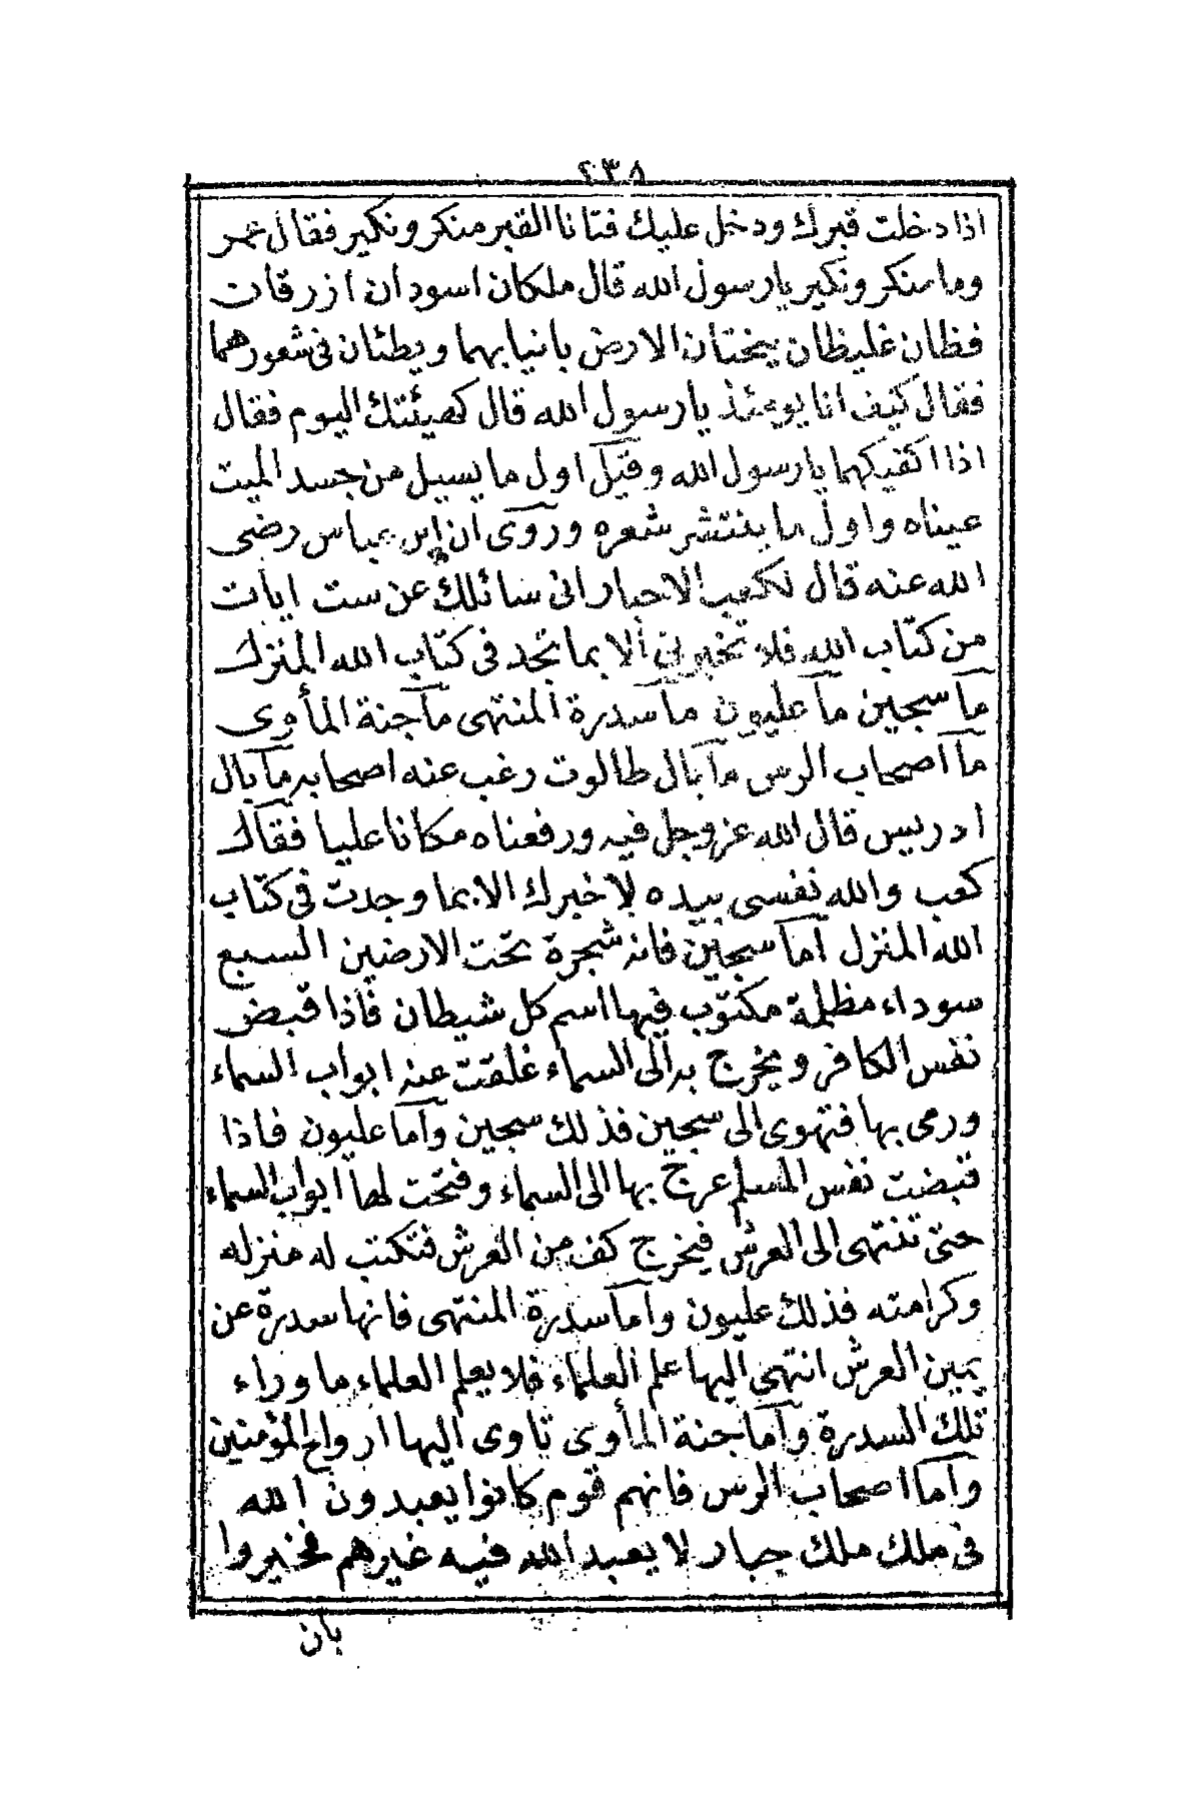 ٢٣٨
اذا دخلت قبرك ودخل عليك فتانا القبر منكر ونكير فقال عمر
وما منكر ونكير يا رسول الله قال ملكان اسودان ازرقان
فظان غليظان يبختان الارض بانيابهما ويطئان فى شعورهما
فقال كيف انا يومئذ يا رسول الله قال كهيئتك اليوم فقال
اذا اكفيكهما يا رسول الله وقيل اول ما يسيل من جسد الميت
عيناه واول ما ينتشر شعره وروى ان ابن عباس رضى
الله عنه قال لكعب الاحبار انى سائلك عن ست ايات
من كتاب الله فلا تخبرنى الا بما تجد فى كتاب الله المنزل
ما سجين ما عليون ما سدرة المنتهى ما جنة المأوى
ما اصحاب الرس ما بال طالوت رغب عنه اصحابه ما بال
ادريس قال الله عز وجل فيه ورفعناه مكانا عليا فقال
كعب والله نفسى بيده لا خبرك الا بما وجدت فى كتاب
الله المنزل اما سجين فانه شجرة تحت الارضين السبع
سوداء مظلمة مكتوب فيها اسم كل شيطان فاذا قبض
نفس الكافر ويخرج به الى السماء غلقت عنه ابواب السماء
ورمى بها فتهوى الى سجين فذلك سجين واما عليون فاذا
قبضت نفس المسلم عرج بها الى السماء وفتحت لها ابواب السماء
حتى تنتهى الى العرش فيخرج كف من العرش فتكتب له منزله
وكرامته فذلك عليون واما سدرة المنتهى فانها سدرة عن
يمين العرش انتهى اليها علم العلماء فلا يعلم العلماء ما وراء
تلك السدرة واما جنة المأوى تاوى اليها ارواح المؤمنين
واما اصحاب الرس فانهم قوم كانوا يعبدون الله
فى ملك ملك جبار لا يعبد الله فيه غيرهم فخيروا
بان